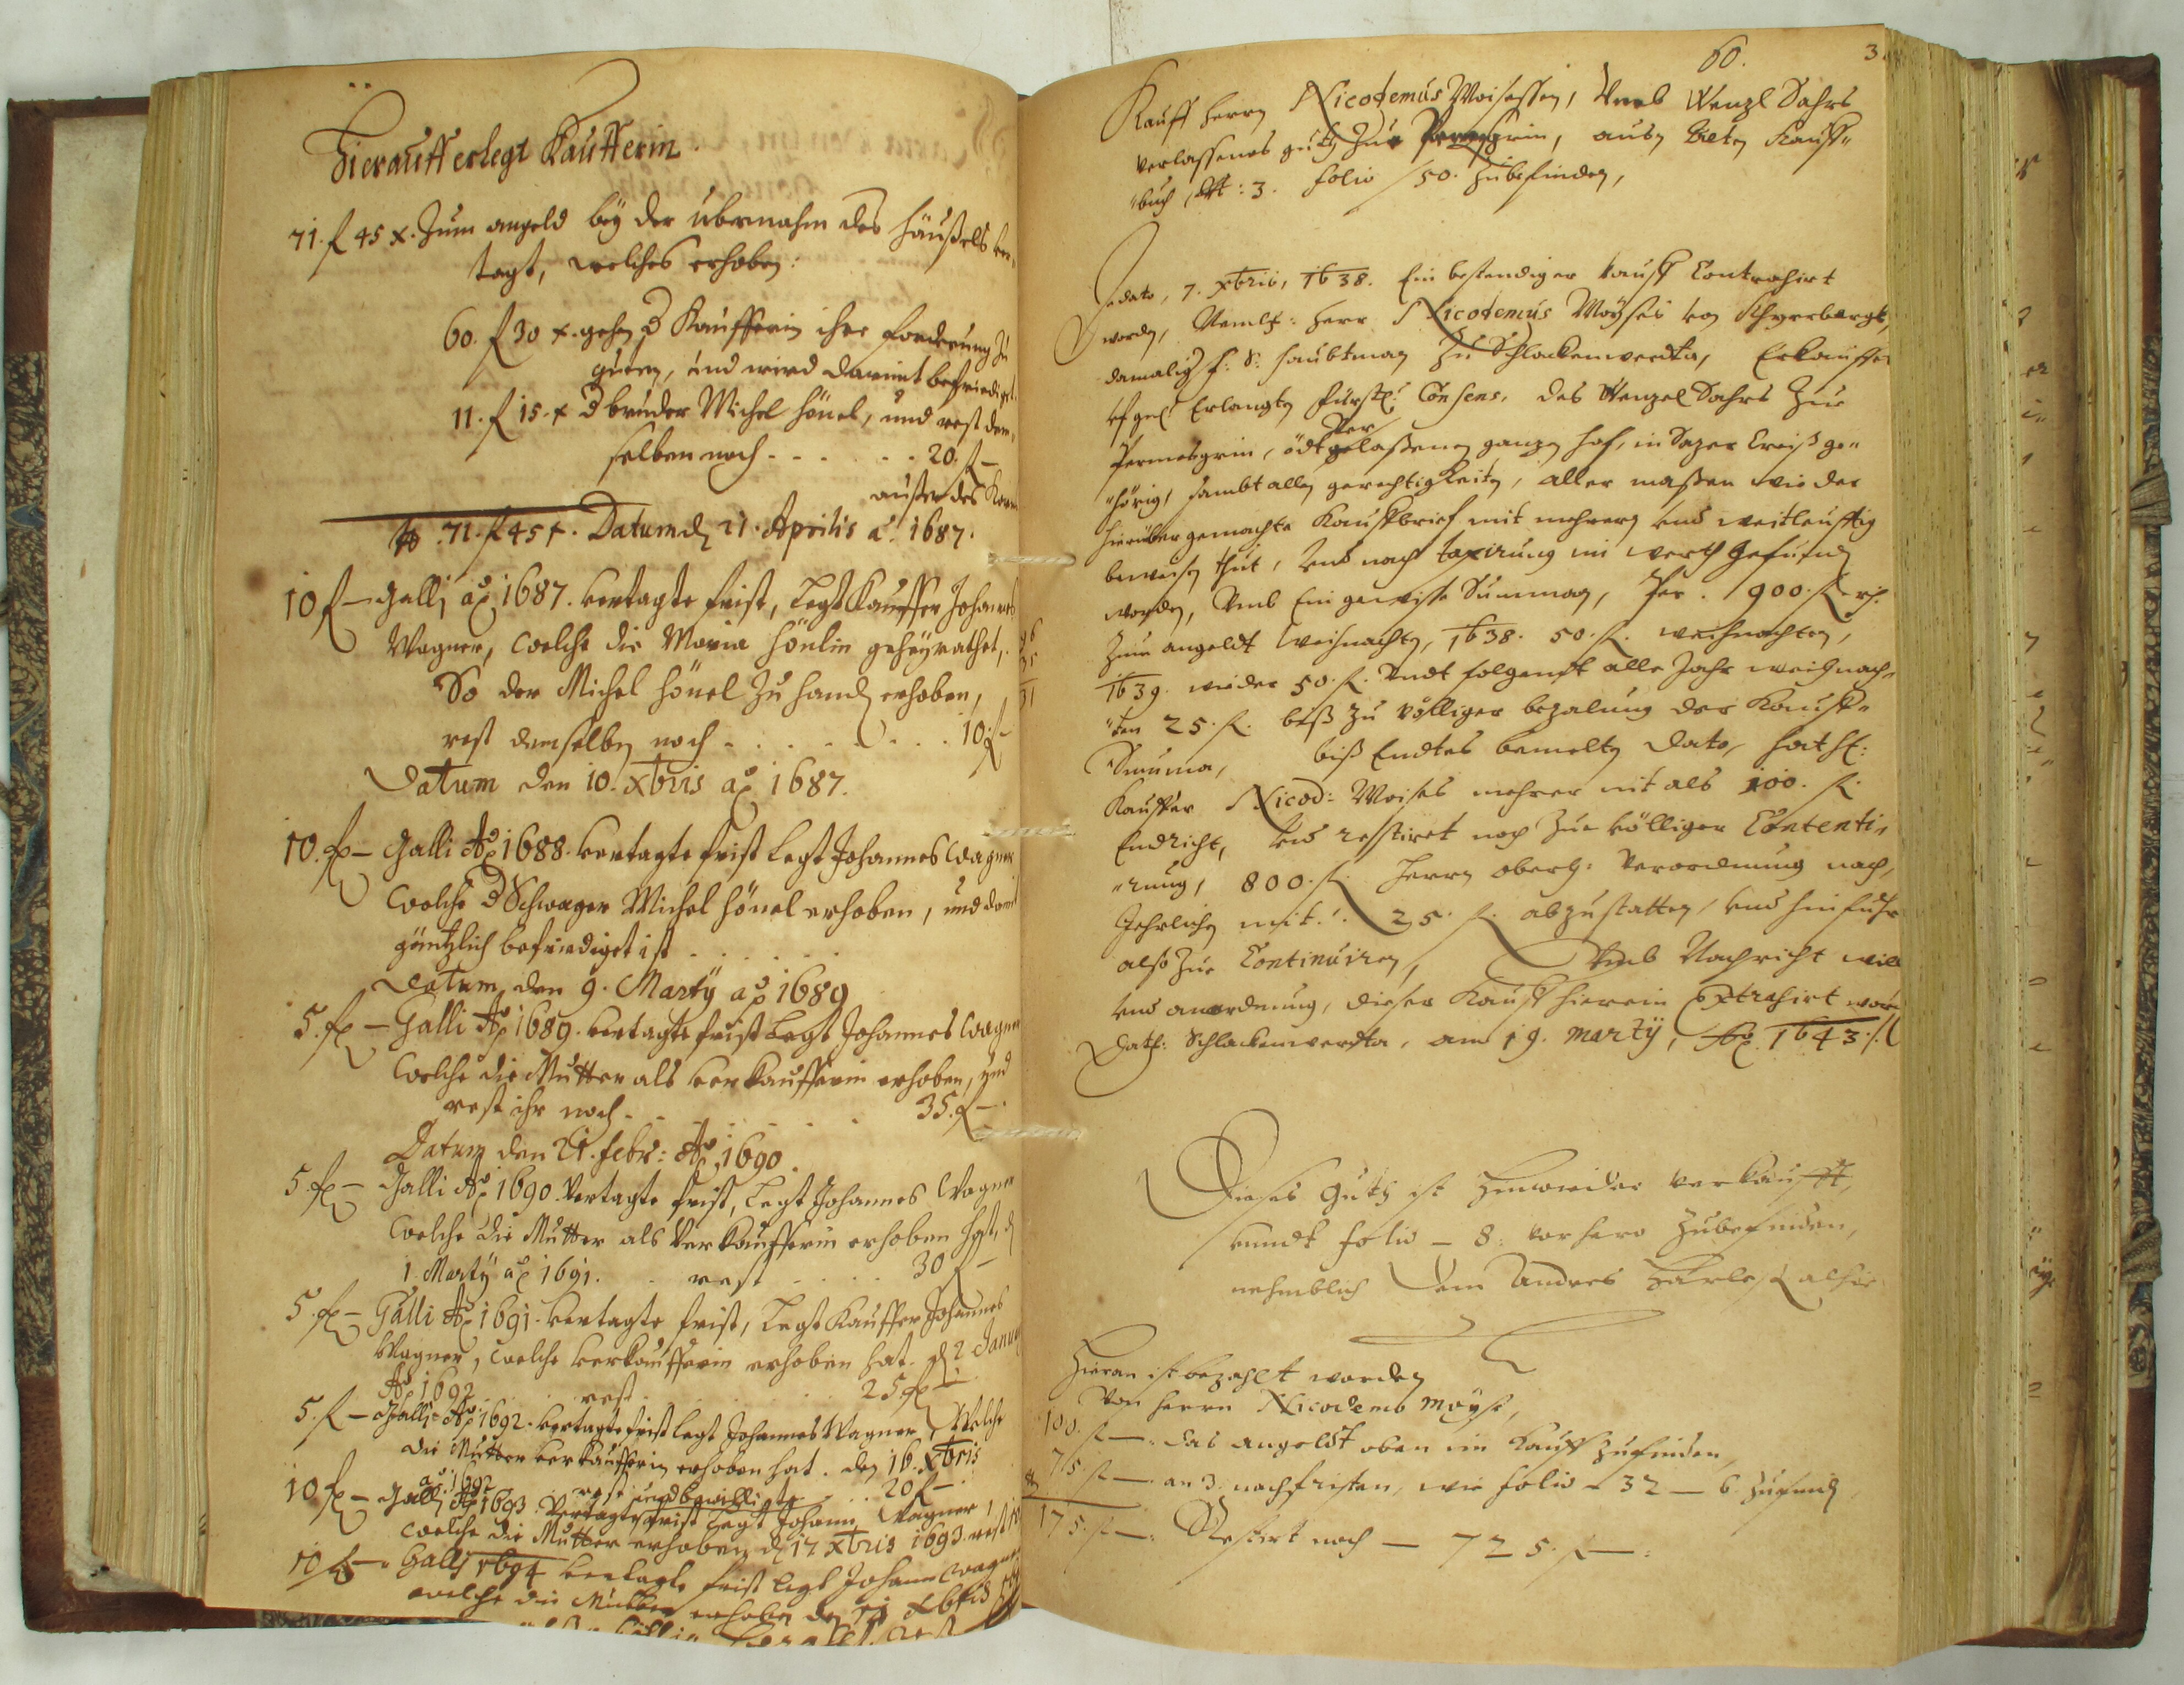 Hierauff erlegt Kaufferin.
71. f 45 x. Zum angeld bey der übernahm des häußels ver„
tagt, welches erhoben:
60. f 30 x. gehen d Kaufferin ihre forderung zu
guten, und wird damit befriediget.
11. f 15. x d bruder Michel Hönel, und rest dem„
selben noch - - - - - 20. f —
außer des Korn
71. f 45 x. Datum d 21. Aprilis aõ. 1687.
10 f — Galli aõ 1687. vertagte frist, legt Kauffer Johannes
Wagner, welche die Maria Hönlin geheyrathet,
So der Michel Hönel zu handen erhoben,
rest demselben noch - . . . . . 10 f —
Datum den 10. Xbris aõ 1687.
10. f — Galli Aõ 1688. vertagte frist legt Johannes Wagner
welche d Schwager Michel Hönel erhoben, und damit
gäntzlich befriediget ist . . . . .
Datum den 9. Marty aõ 1689
5. f — Galli Aõ 1689. vertagte frist legt Johannes Wagner
welche die Mutter als verkaufferin erhoben, und
rest ihr noch - . . . . . 35. f —
Datum den 21. Febr: Aõ 1690.
5. f — Galli Aõ 1690. Vertagte frist, legt Johannes Wagner
welche die Mutter als Verkaufferin erhoben hat, d
1. Marty aõ 1691. . rest . . . . 30 f —
5. f — Galli Aõ 1691. vertagte frist, legt Kauffer Johannes
Wagner, welche verkaufferin erhoben hat. d 2 Janu
Aõ 1692 . . rest . . . . 25 f —
5. f — Galli Aõ 1692. vertagte frist legt Johannes Wagner, Welche
die Mutter verkaufferin erhoben hat. den 16. Xbris
aõ. 1692 . . rest . . 20 f —
10 f — Galli Aõ 1693. Vertagte frist legt Johann Wagner,
welche die Mutter erhoben d 17 Xbris 1693. rest
10 f — Galli 1694 vertagte frist legt Johann Wagner
welche die Mutter erhoben den Xbris
60. 3
Kauff Herrn Nicodemus Moisessen, Vmb Wenzl Sahrs
verlassenes guth Zue Permesgrin, aus Alten Kauff„
„buch : 3. folio 50. Zubefinden,
dato, 7. Xbris, 1638. Ein bestendiger kauff Contrahirt
worden, Nemlich: Herr Nicodemus Moyses von
damalig F: S: haubtman Zu Schlackenwerdta, Erkauffte
Erlangten fürstl: Consens, des Wenzel Sahrs Zue
Permesgrin, ödt verlaßenen ganzen hof, in Sazer Creiß ge„
„hörig, sambt allen gerechtigkeiten, aller maßen wie der
hierüber gemachte Kauffbrief mit mehrern vnd weitleufftig
beweisen thut, Vnd nach taxirung im werth gefunden
worden, Vmb Ein gewisse Summa, Per . 900. f rh.
Zum angeldt Weihnachten, 1638. 50. f. weihnachten,
1639. wieder 50. f. Vndt folgendt alle Jahr weihnach„
„ten 25. f. biß zu völliger bezalung der Kauff„
Summa, biß Endtes bemelten Dato, hat H:
Kauffer Nicod: Moises mehrer nit als 100. f.
Endricht, vnd restiret noch Zue völliger Contenti„
„rung, 800. f. Herrn oberh: Verordnung nach,
Jehrlichen mit . 25. f. abzustatten, vnd hinfuhr
also Zue Continuiren, Vmb Nachricht will
vnd anordnung, dieser Kauff hierein Extrahirt wor
Dat: Schlackenwerdta, am 19. Marty, Aõ. 1643.
Dieses Guth ist hinwieder verkaufft,
vnndt folio — 8: vorhero Zubefinden,
nehmblich dem Andres alhie
Hieran ist bezahlt worden
Von Herrn Nicodemo Moyse,
100. f — : das angeldt oben im Kauff Zufinden,
75 f — : an 3. nachfristen, wie folio — 32 — 6. Zufinden
175. f — : Restirt noch — 725. f — :